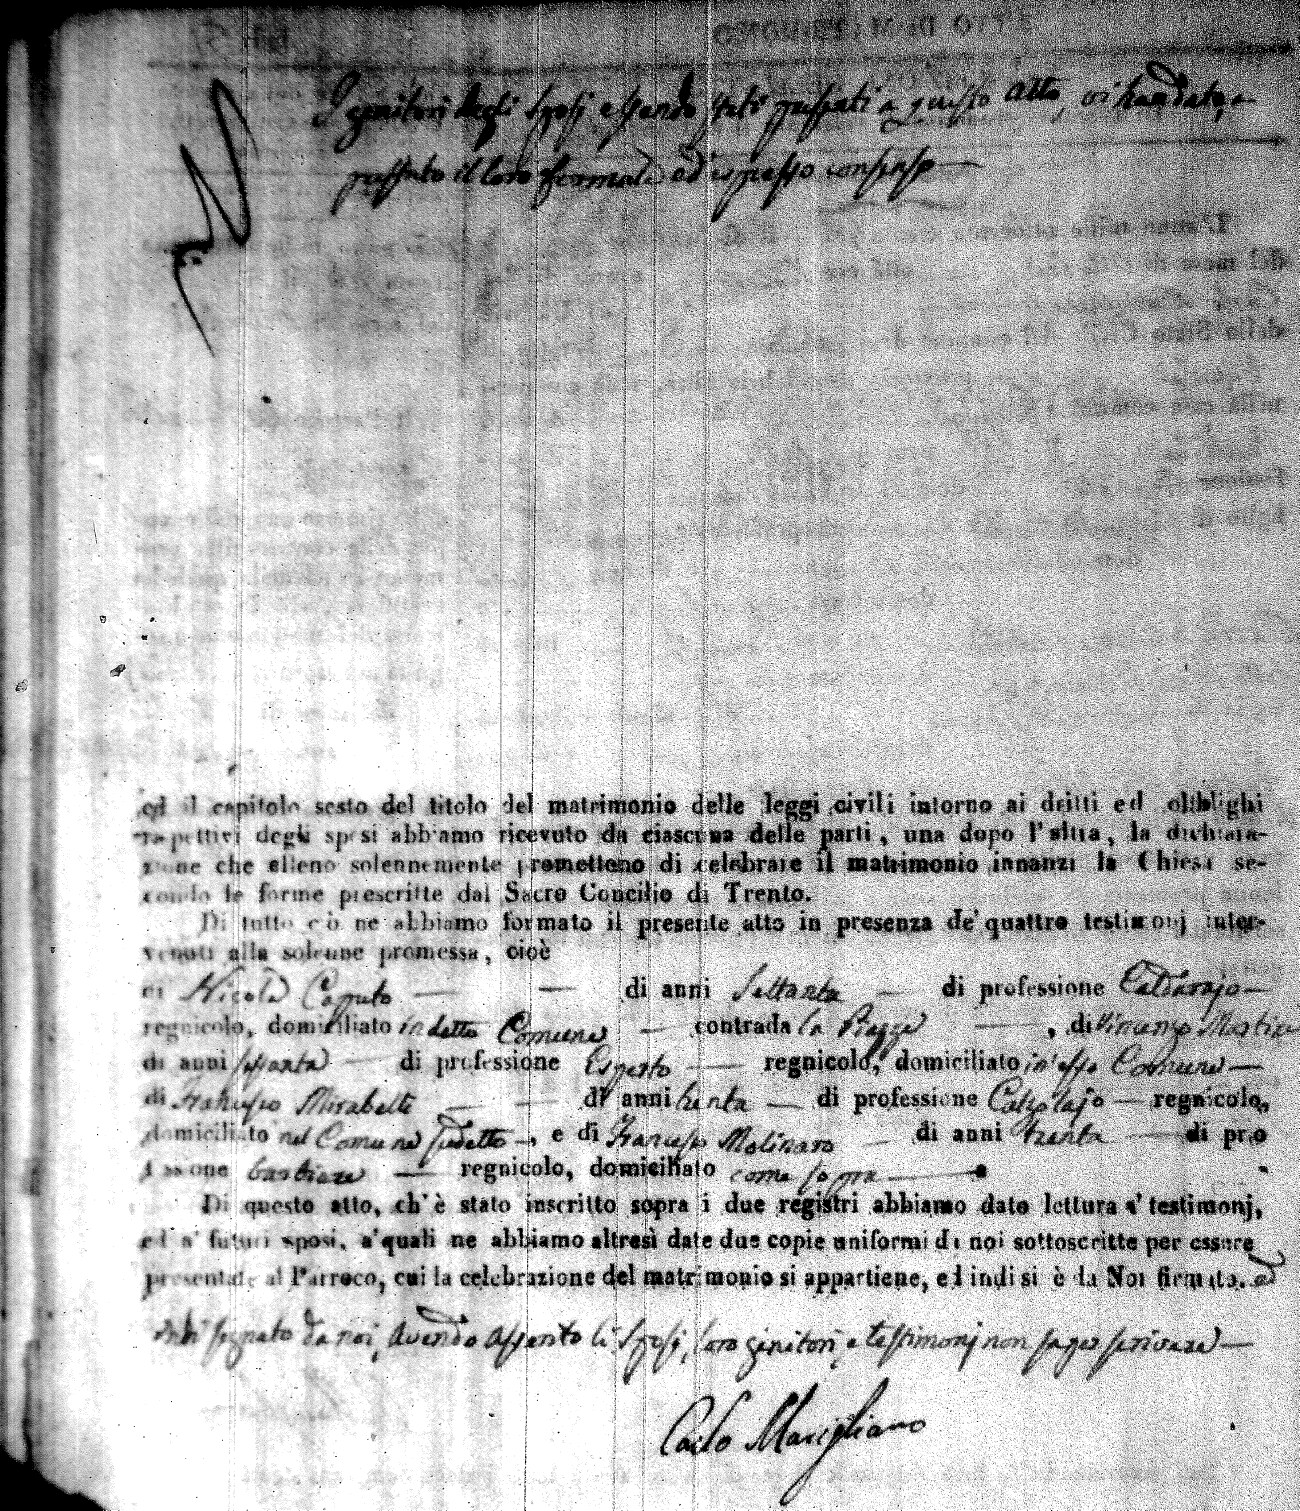 I genitori degli Sposi essendo stati presenti a questo atto, vi han dato, e
prestato il loro formale ed espresso consenso
ed il capitolo sesto del titolo del matrimonio delle leggi civili intorno ai dritti ed obblighi
rispettivi degli sposi abbiamo ricevuto da ciascuna delle parti, una dopo l'altra, la dichiara-
zione che elleno solennemente promettono di celebrare il matrimonio innanzi la Chiesa se-
condo le forme prescritte dal Sacro Concilio di Trento.
Di tutto ciò ne abbiamo formato il presente atto in presenza de' quattro testimonj inter-
venuti alla solenne promessa, cioè
di Nicola Caputo — — di anni Settanta — di professione Caldarajo —
regnicolo, domiciliato in detto Comune — contrada la Piazza — , di Vincenzo
di anni sessanta — di professione Esperto — regnicolo, domiciliato in esso Comune —
di Francesco Mirabelli — — di anni trenta — di professione Calzolajo — regnicolo,
domiciliato nel Comune sudetto —, e di Francesco Molinaro — di anni trenta — di pro
fessione barbiere — regnicolo, domiciliato come sopra —
Di questo atto, ch'è stato inscritto sopra i due registri abbiamo dato lettura a' testimonj,
ed a' futuri sposi, a' quali ne abbiamo altresì date due copie uniformi da noi sottoscritte per essere
presentate al Parroco, cui la celebrazione del matrimonio si appartiene, ed indi si è da Noi firmato. ed
segnato da noi, avendo asserito li Sposi, loro genitori, e testimonj non saper scrivere —
Carlo Marigliano